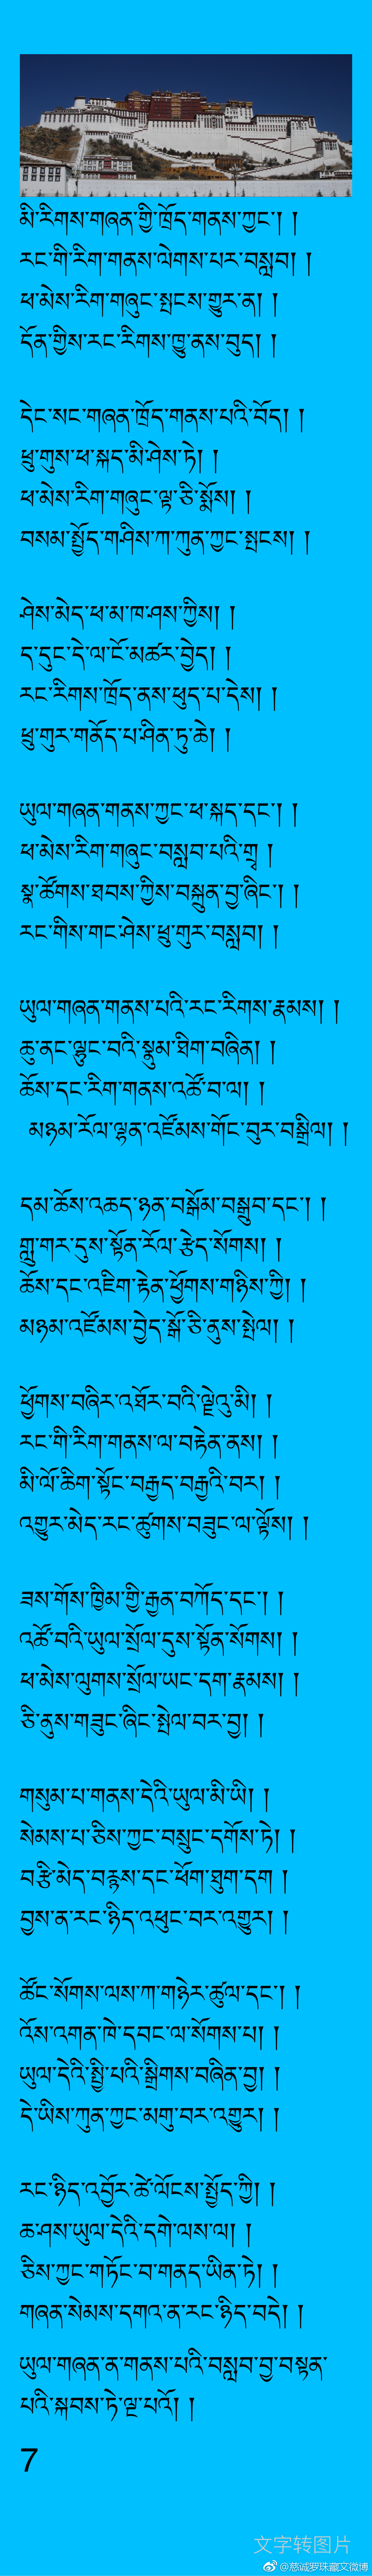 མི་རིགས་གཞན་གྱི་ཁྲོད་གནས་ཀྱང་། །
རང་གི་རིག་གནས་ལེགས་པར་བསླབ། །
ཕ་མེས་རིག་གཞུང་སྤངས་གྱུར་ན། །
དོན་གྱིས་རང་རིགས་ཁྱུ་ནས་བུད། །
དེང་སང་གཞན་ཁྲོད་གནས་པའི་བོད། །
ཕྲུ་གུས་ཕ་སྐད་མི་ཤེས་ཏེ། །
ཕ་མེས་རིག་གཞུང་ལྟ་ཅི་སྨོས། །
བསམ་སྤྱོད་གཤིས་ཀ་ཀུན་ཀྱང་སྤངས། །
ཤེས་མེད་ཕ་མ་ཁ་ཤས་ཀྱིས། །
ད་དུང་དེ་ལ་ངོ་མཚར་བྱེད། །
རང་རིགས་ཁྲོད་ནས་ཕུད་པ་དེས། །
ཕྲུ་གུར་གནོད་པ་ཤིན་ཏུ་ཆེ། །
ཡུལ་གཞན་གནས་ཀྱང་ཕ་སྐད་དང་། །
ཕ་མེས་རིག་གཞུང་བསླབ་པའི་གྲྭ །
སྣ་ཚོགས་ཐབས་ཀྱིས་བསྐྲུན་བྱ་ཞིང་། །
རང་གིས་གང་ཤེས་ཕྲུ་གུར་བསླབ། །
ཡུལ་གཞན་གནས་པའི་རང་རིགས་རྣམས། །
ཆུ་ནང་ལྷུང་བའི་སྣུམ་ཐིག་བཞིན། །
ཆོས་དང་རིག་གནས་འཚོ་བ་ལ། །
མཉམ་རོལ་ལྷན་འཛོམས་གོང་བུར་བསྒྲིལ། །
དམ་ཆོས་འཆད་ཉན་བསྒོམ་བསྒྲུབ་དང་། །
གླུ་གར་དུས་སྟོན་རོལ་རྩེད་སོགས། །
ཆོས་དང་འཇིག་རྟེན་ཕྱོགས་གཉིས་ཀྱི། །
མཉམ་འཛོམས་བྱེད་སྒོ་ཅི་ནུས་སྤེལ། །
ཕྱོགས་བཞིར་འཐོར་བའི་ལྗེའུ་མི། །
རང་གི་རིག་གནས་ལ་བརྟེན་ནས། །
མི་ལོ་ཆིག་སྟོང་བརྒྱད་བརྒྱའི་བར། །
འགྱུར་མེད་རང་ཚུགས་བཟུང་ལ་ལྟོས། །
ཟས་གོས་ཁྱིམ་གྱི་རྒྱན་བཀོད་དང་། །
འཚོ་བའི་ཡུལ་སྲོལ་དུས་སྟོན་སོགས། །
ཕ་མེས་ལུགས་སྲོལ་ཡང་དག་རྣམས། །
ཅི་ནུས་གཟུང་ཞིང་སྤེལ་བར་བྱ། །
གསུམ་པ་གནས་དེའི་ཡུལ་མི་ཡི། །
སེམས་པ་ཅིས་ཀྱང་བསྲུང་དགོས་ཏེ། །
བརྩི་མེད་བརྙས་དང་ཕོག་ཐུག་དག །
བྱས་ན་རང་ཉིད་འཕུང་བར་འགྱུར། །
ཚོང་སོགས་ལས་ཀ་གཉེར་ཚུལ་དང་། །
འོས་འགན་ཁེ་དབང་ལ་སོགས་པ། །
ཡུལ་དེའི་སྤྱི་པའི་སྒྲིགས་བཞིན་བྱ། །
དེ་ཡིས་ཀུན་ཀྱང་མགུ་བར་འགྱུར། །
རང་ཉིད་འབྱོར་ཚེ་ལོངས་སྤྱོད་ཀྱི། །
ཆ་ཤས་ཡུལ་དེའི་དགེ་ལས་ལ། །
ཅིས་ཀྱང་གཏོང་བ་གནད་ཡིན་ཏེ། །
གཞན་སེམས་དགའ་ན་རང་ཉིད་བདེ། །
ཡུལ་གཞན་ན་གནས་པའི་བསླབ་བྱ་བསྟན་
པའི་སྐབས་ཏེ་ལྔ་པའོ། །
7
文字转图片
@慈诚罗珠藏文微博